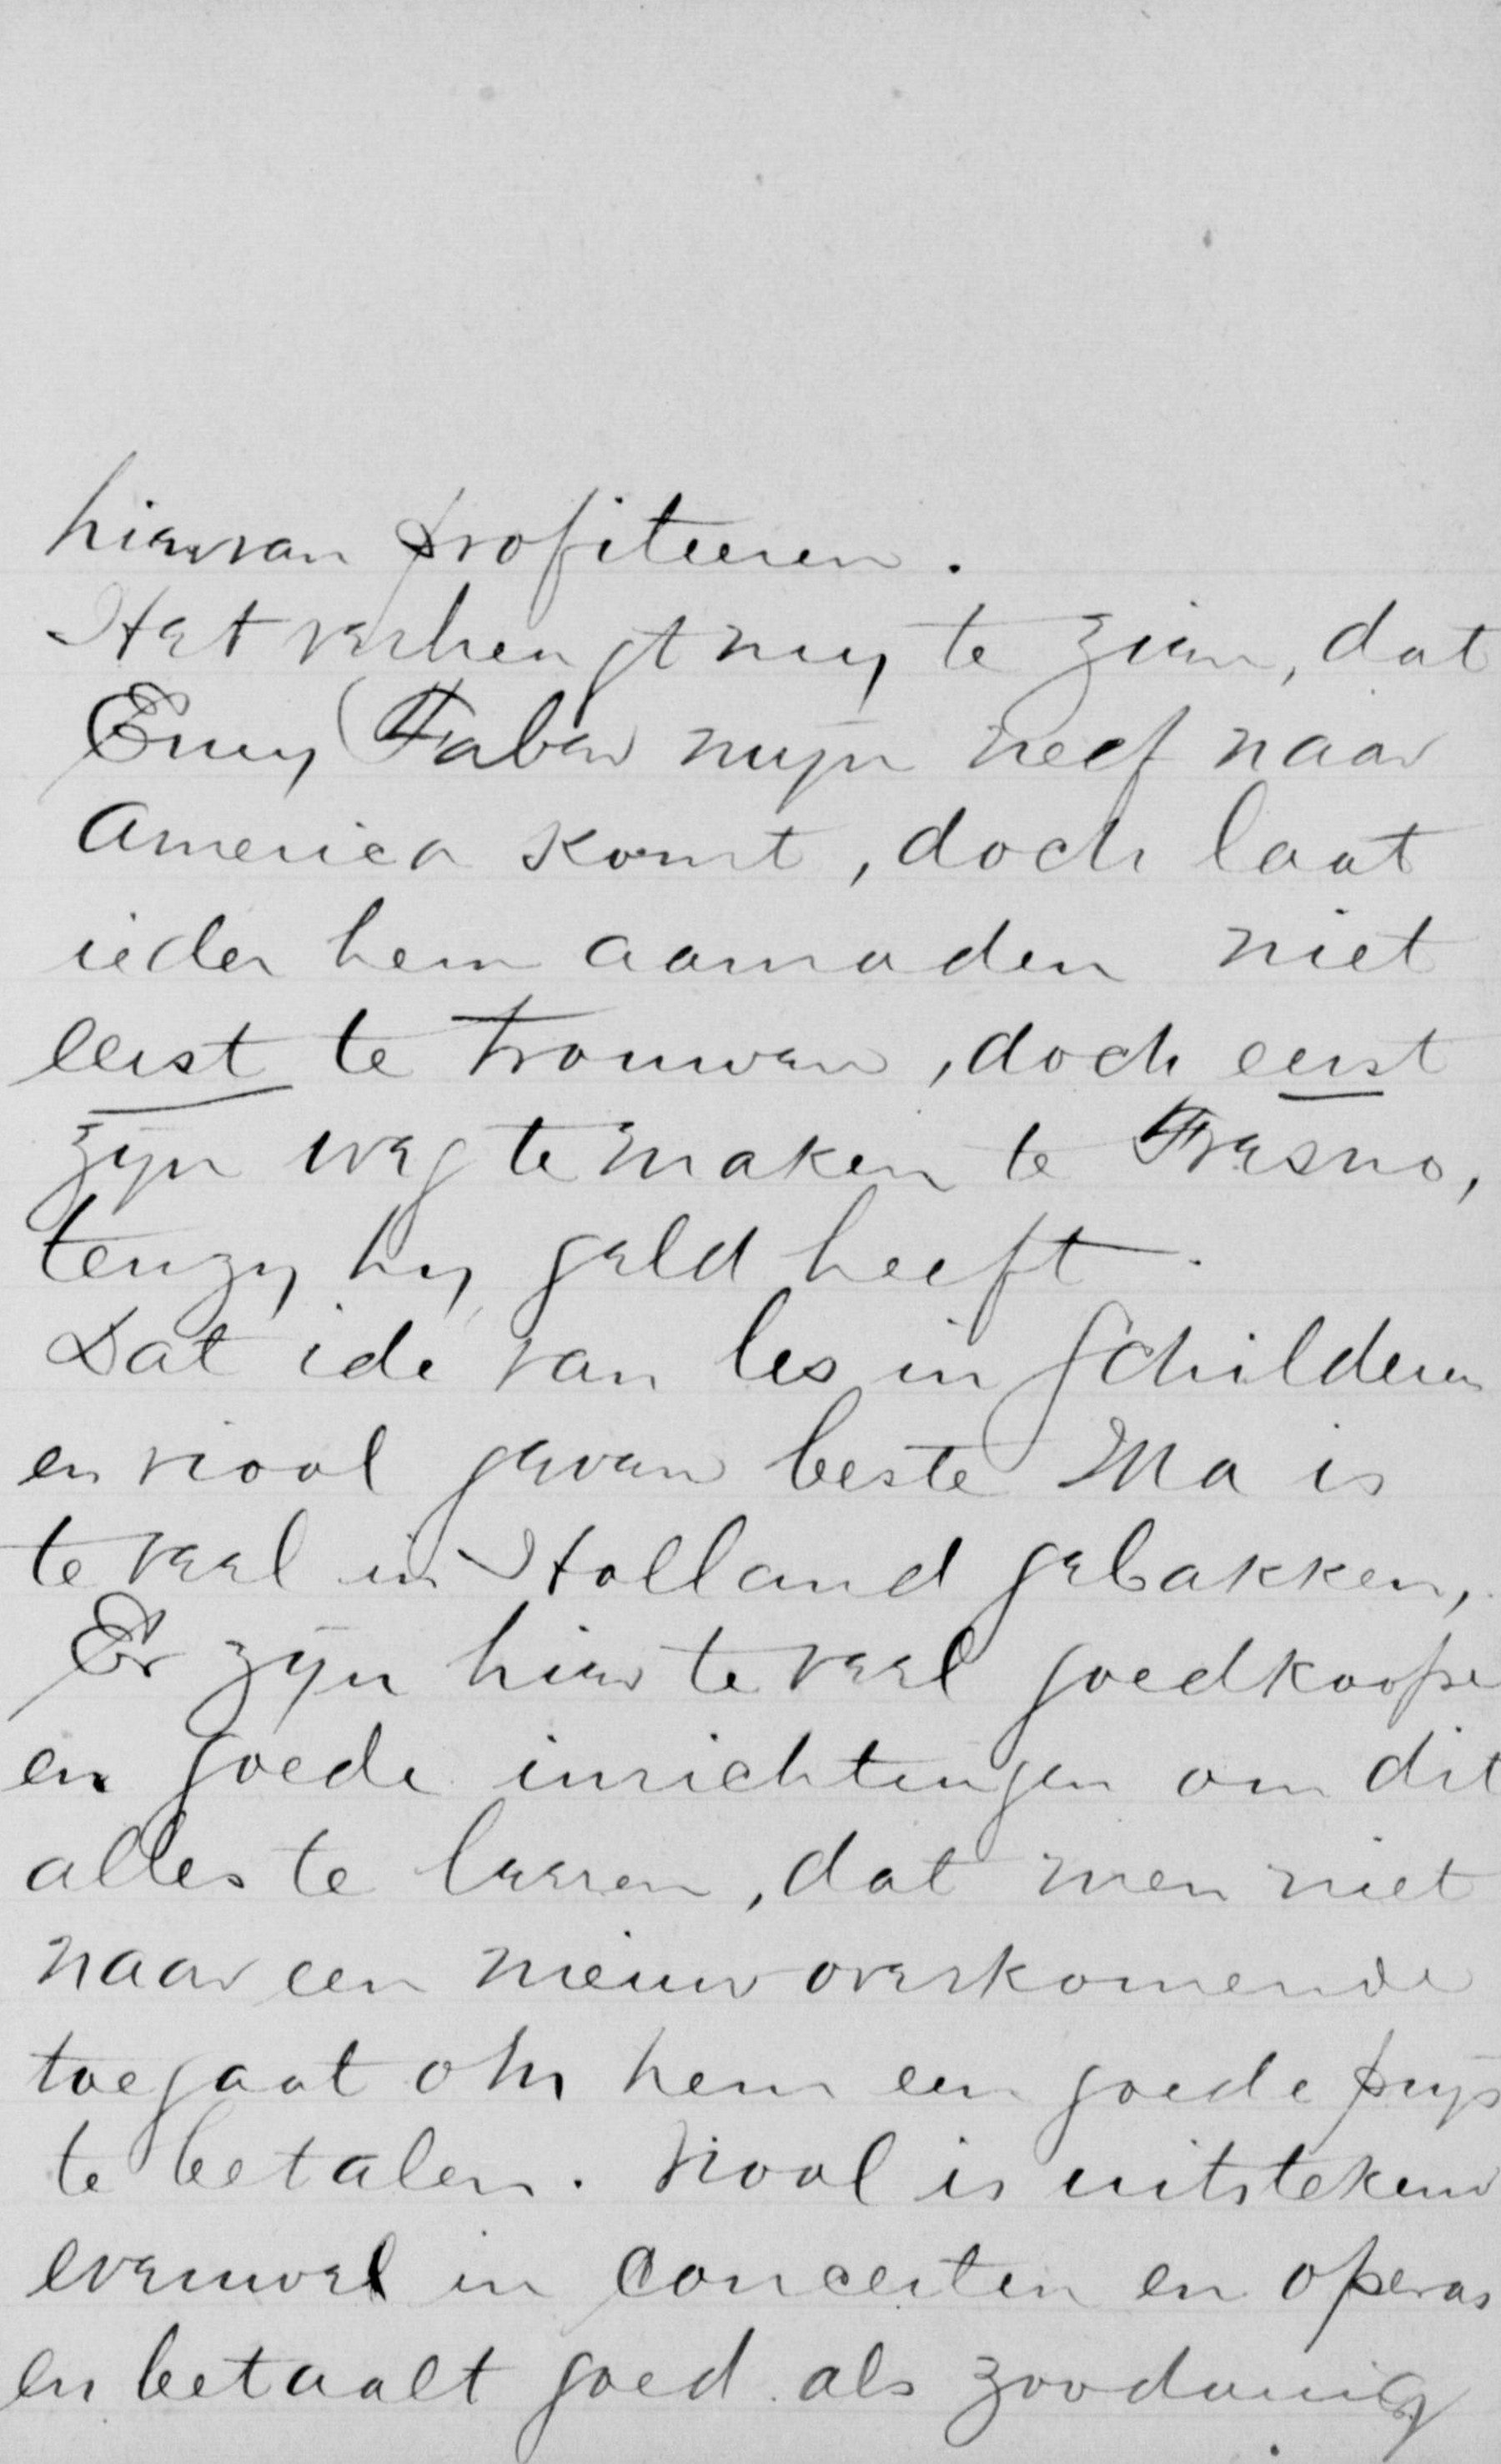 hiervan profiteeren.
Het verheugt my te zien, dat
Emy Faber mijn neef naar
America komt, doch laat
ieder hem aanraden niet
eerst te trouwen, doch eerst
zijn weg te maken te Fresno,
tenzy hy geld heeft.
Dat ide van les in schilderen
en viool geven beste Ma is
te veel in Holland gebakken,
Er zijn hier te veel goedkoope
en goede inrichtingen om dit
alles te leeren, dat men niet
naar een nieuw overkomende
toegaat om hem een goede prijs
te betalen. Viool is uitstekend
evenwel in concerten en operas
en betaalt goed als zoodanig